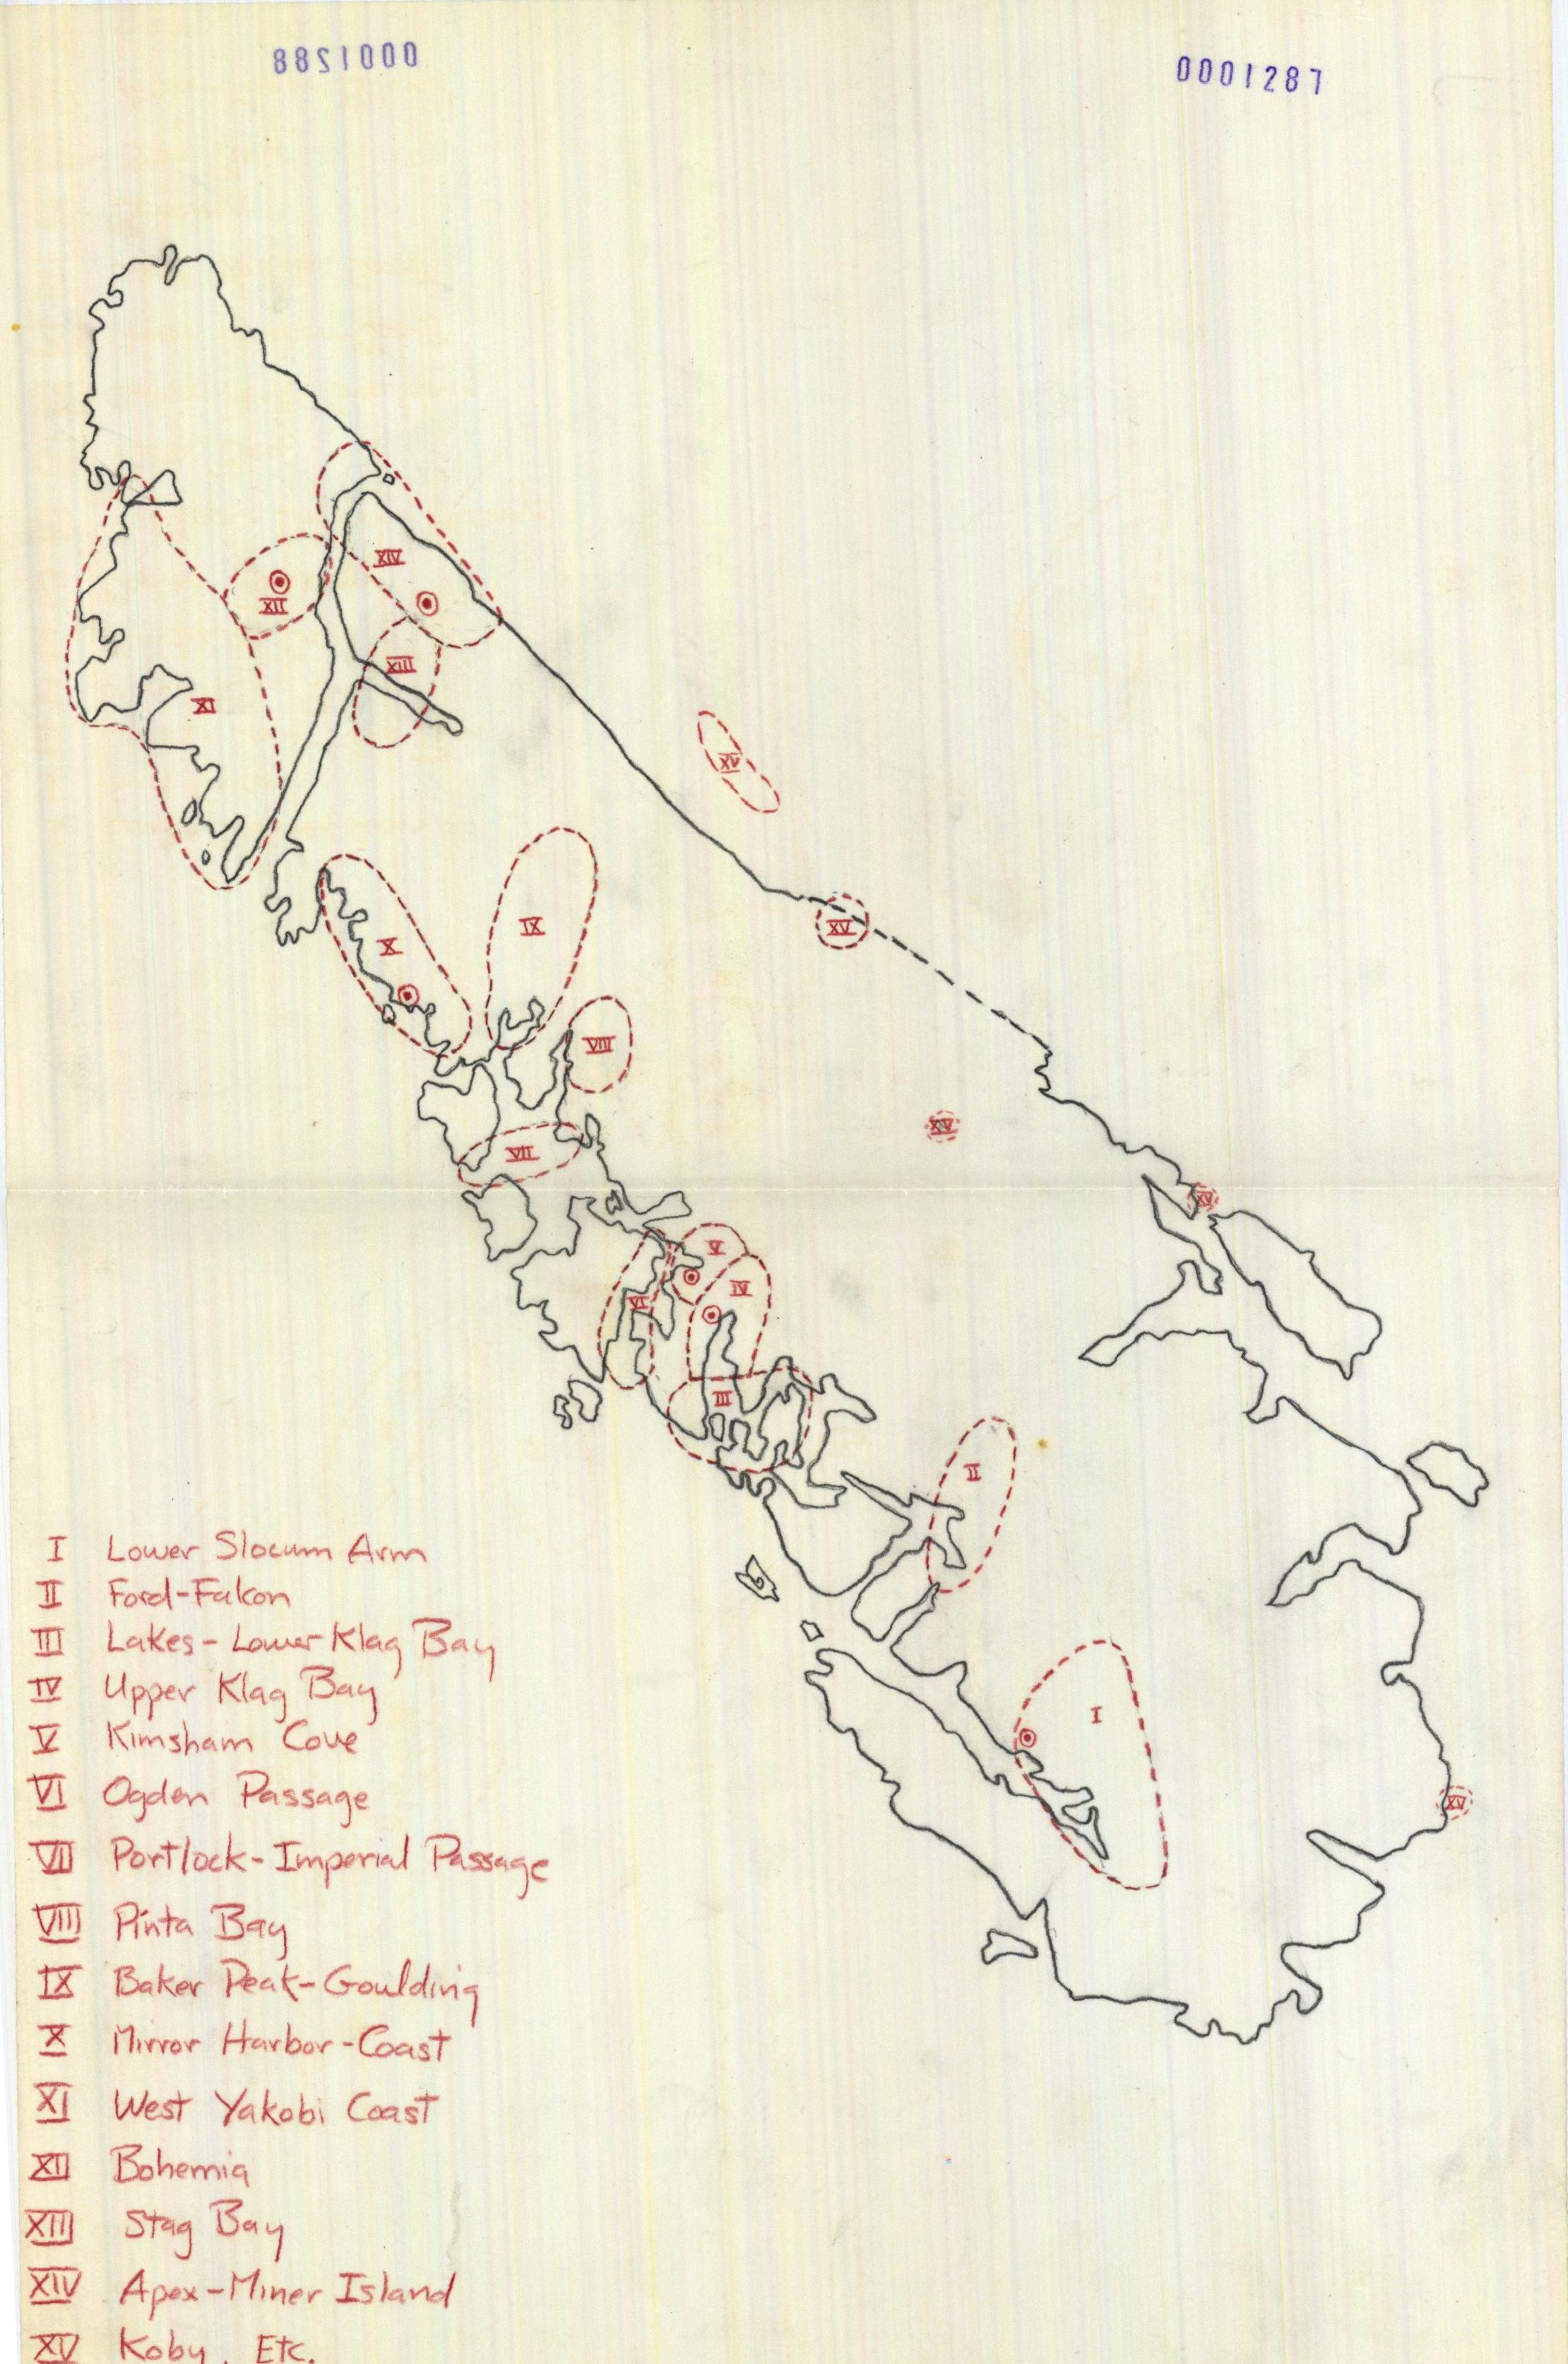 0001288
0001287
XIV
XII
XIII
XI
XV
IX
X
XV
VIII
XV
VII
XV
V
IV
VI
III
II
I
XV
I Lower Slocum Arm
II Ford-Falcon
III Lakes-Lower Klag Bay
IV Upper Klag Bay
V Kimsham Cove
VI Ogden Passage
VII Portlock-Imperial Passage
VIII Pinta Bay
IX Baker Peak-Goulding
X Mirror Harbor-Coast
XI West Yakobi Coast
XII Bohemia
XIII Stag Bay
XIV Apex-Miner Island
XV Koby, Etc.